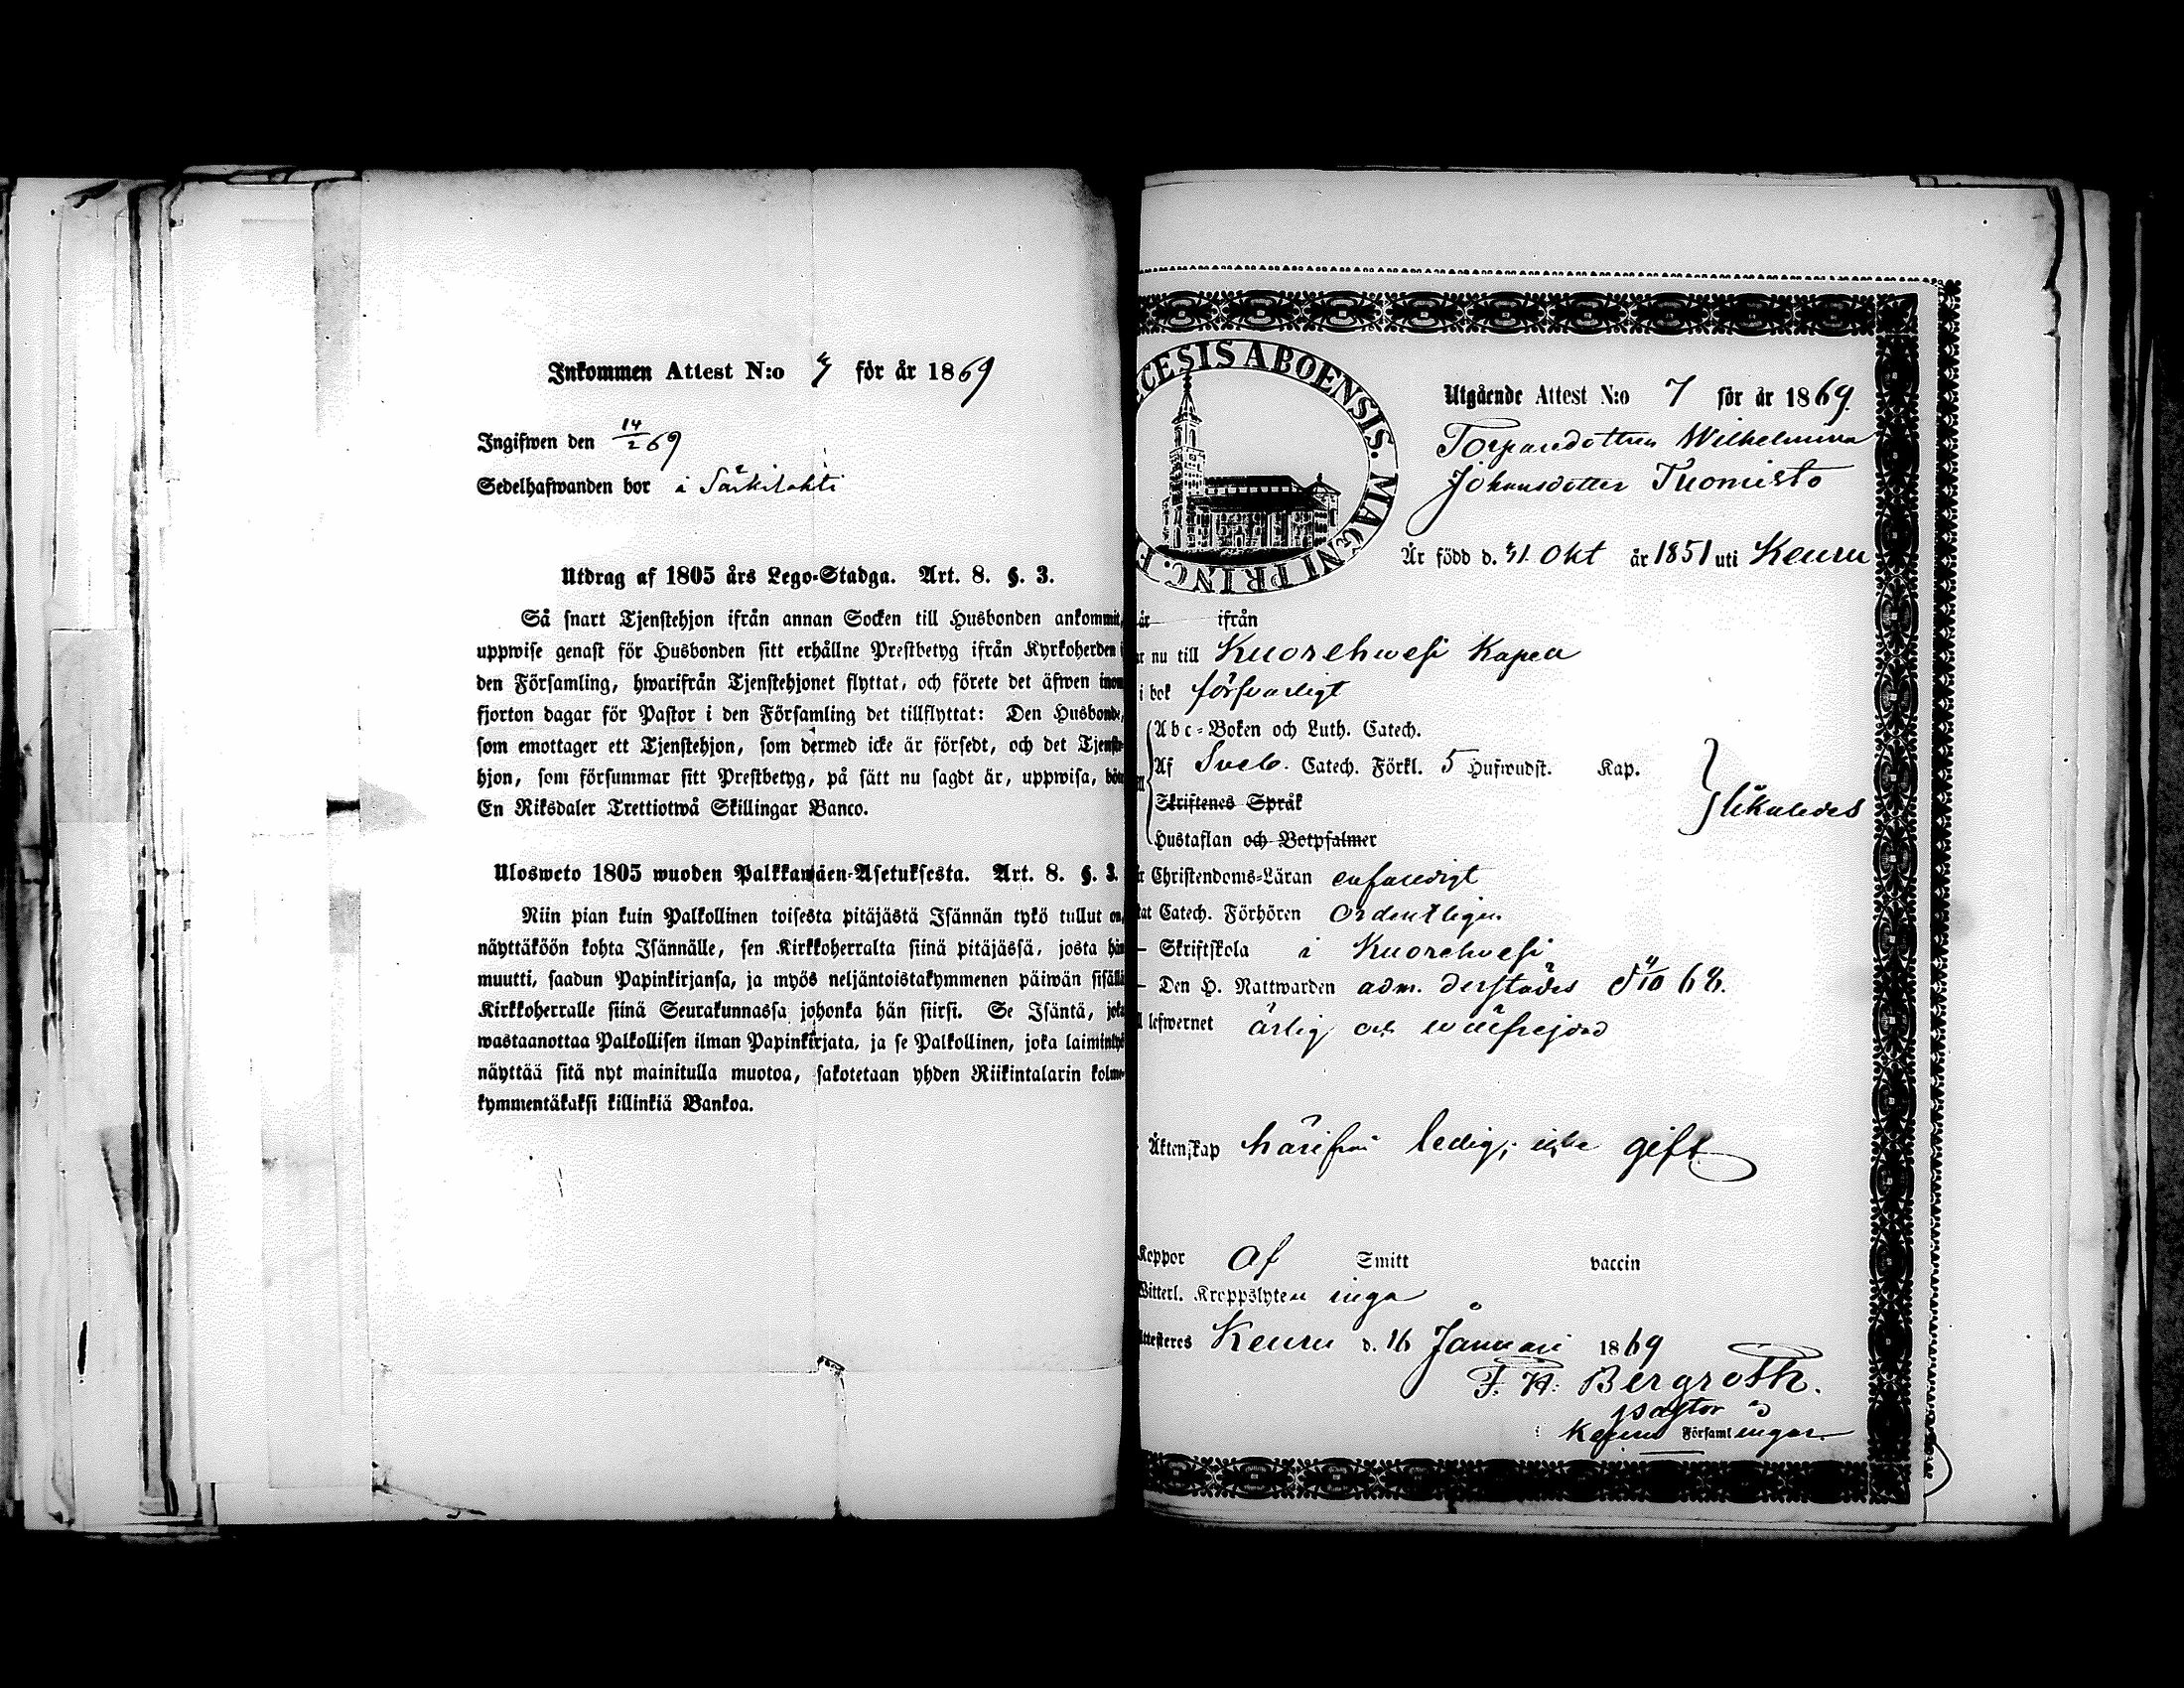 Inkommen Attest N:o för år 1869
Ingifwen den 14/2 69
Sedelhafwanden bor i Särkilahti
Utdrag af 1805 års Lego-Stadga. Art. 8. §. 3.
Så snart Tjenstehjon ifrån annan Socken till Husbonden ankommit,
uppwise genast för Husbonden sitt erhållne Prestbetyg ifrån Kyrkoherden i
den Församling, hwarifrån Tjenstehjonet flyttat, och förete det äfwen inom
fjorton dagar för Pastor i den Församling det tillflyttat: Den Husbonde,
som emottager ett Tjenstehjon, som dermed icke är försedt, och det Tjenste-
hjon, som försummar sitt Prestbetyg, på sätt nu sagdt är, uppwisa, böte
En Riksdaler Trettiotwå Skillingar Banco.
Ulosweto 1805 wuoden Palkkawäen-Asetuksesta. Art. 8. §. 3.
Niin pian kuin Palkollinen toisesta pitäjästä Isännän tykö tullut on,
näyttäköön kohta Isännälle, sen Kirkkoherralta siinä pitäjässä, josta hän
muutti, saadun Papinkirjansa, ja myös neljäntoistakymmenen päiwän sisällä
Kirkkoherralle siinä Seurakunnassa johonka hän siirsi. Se Isäntä, joka
wastaanottaa Palkollisen ilman Papinkirjata, ja se Palkollinen, joka laiminlyö
näyttää sitä nyt mainitulla muotoa, sakotetaan yhden Riikintalarin kolme-
kymmentäkaksi killinkiä Bankoa.
CESIS ABOENSIS. MAGNI PRINC. F
Utgående Attest N:o 7 för år 1869.
Torparedottren Wilhelmina
Johansdotter Tuomisto
Är född d. 31 Okt år 1851 uti Keuru
år ifrån
nu till Kuorehwesi Kapell
i bok försvarligt
Abc-Boken och Luth. Catech.
Af Sveb. Catech. Förkl. 5 Hufwudst. Kap.
Skriftenes Språk
likaledes
Hustaflan och Botpsalmer
Christendoms-Läran enfaldigt
Catech. Förhören ordentligen
Skriftskola i Kuorehvesi
Den H. Nattwarden adm. derstädes d 4/10 68.
lefwernet ärlig och wälfrejdad
Äktenskap härifrån ledig; icke gift
Koppor af Smitt vaccin
Witterl. Kroppslyten inga
Attesteras Keuru d. 16 Januari 1869
F. H. Bergroth.
pastor i
Keuru Församlingar.